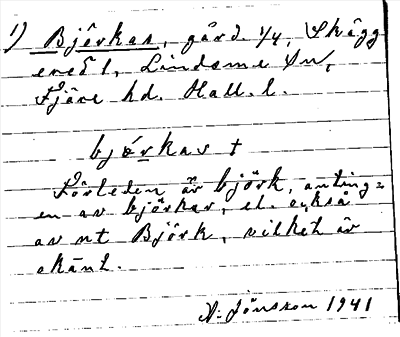 1) Björkas, gård. 1/4, Skägg
ered 1, Lindome Sn,
Fjäre hd. Hall. l.
björkas +
Förleden är björk, anting=
en av björkar, el. också
av nt Björk, vilket är
okänt.
A. Jönsson 1941